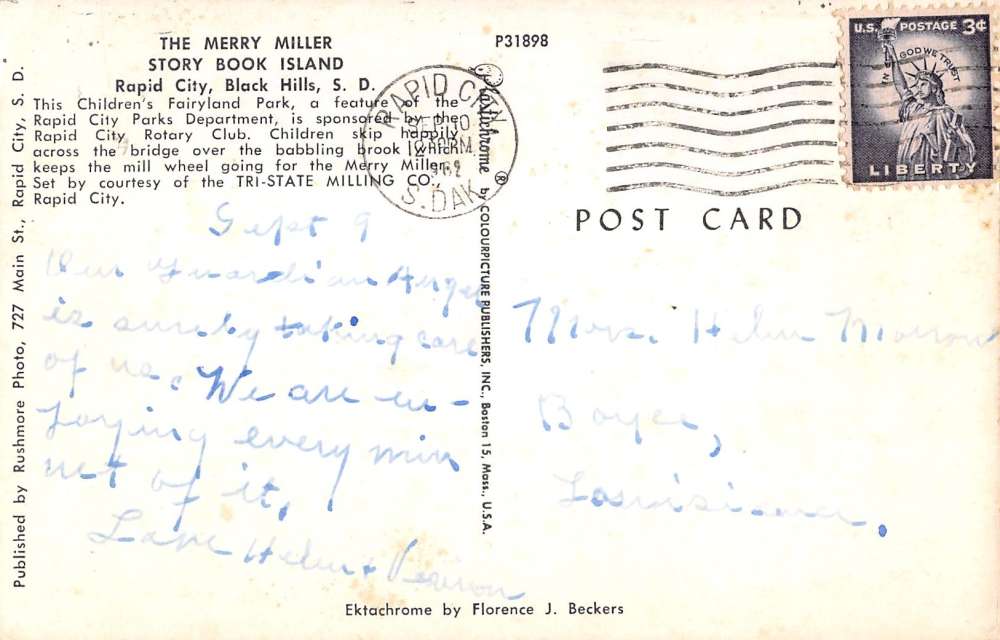 THE MERRY MILLER
STORY BOOK ISLAND
Rapid City, Black Hills, S. D.
This Children's Fairyland Park, a feature of the
Rapid City Parks Department, is sponsored by the
Rapid City Rotary Club. Children skip happily
across the bridge over the babbling brook which
keeps the mill wheel going for the Merry Miller.
Set by courtesy of the TRI-STATE MILLING CO.,
Rapid City.
Published by Rushmore Photo, 727 Main St., Rapid City, S. D.
P31898
Plastichrome ® by COLOURPICTURE PUBLISHERS, INC., Boston 15, Mass., U.S.A.
RAPID CITY
SEP 10
PM
1962
S. DAK
U.S. POSTAGE 3¢
IN GOD WE TRUST
LIBERTY
POST CARD
Sept 9
Our Guardian Angel
is surely taking care
of us. We are en-
joying every min
ute of it,
Love Helen +
Mrs. Helen
Boyce,
Louisiana.
Ektachrome by Florence J. Beckers